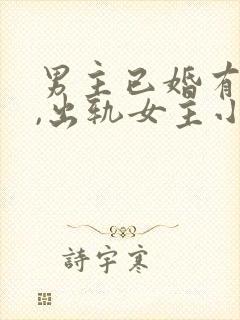 男主已婚有
,出轨女主小
詩宇寒